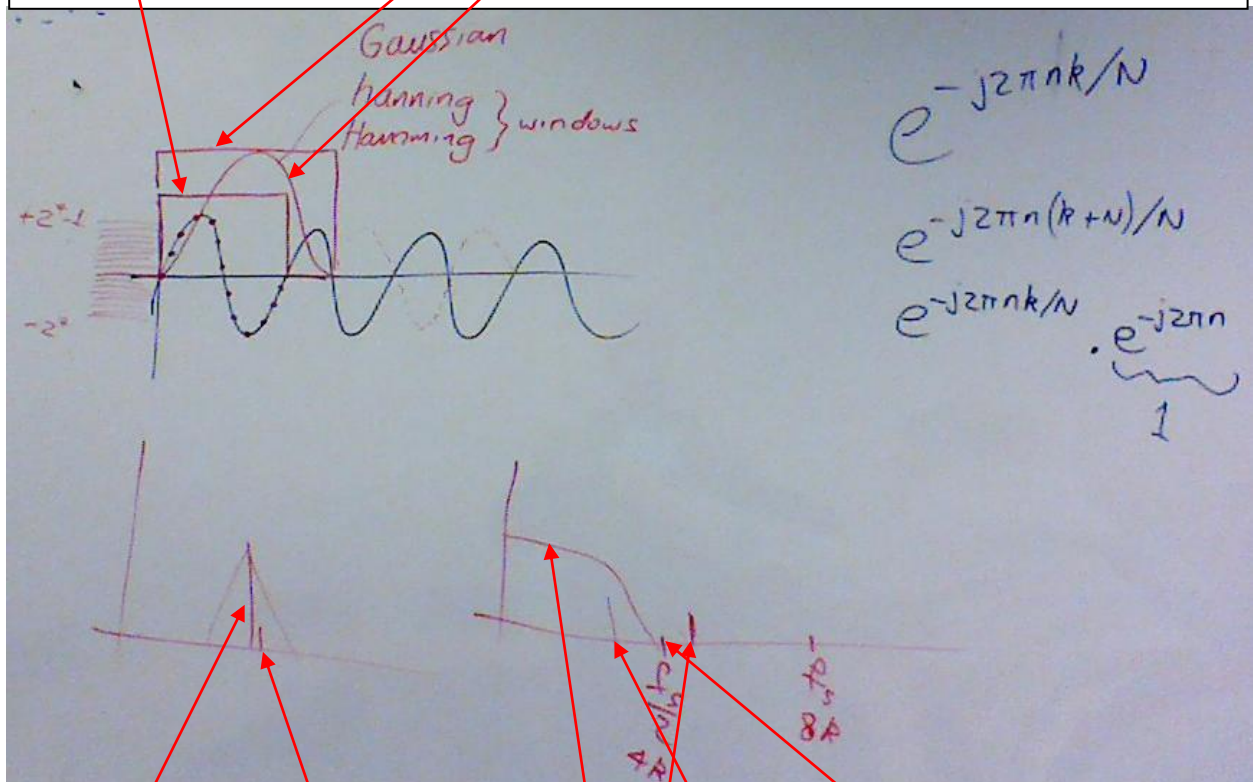 Gaussian
hanning
Hamming } windows
e^-j2πnk/N
e^-j2πn(k+N)/N
e^-j2πnk/N . e^-j2πn
1
fs/2
4k
fs
8k